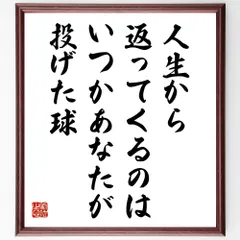 人生から
返ってくるのは
いつかあなたが
投げた球